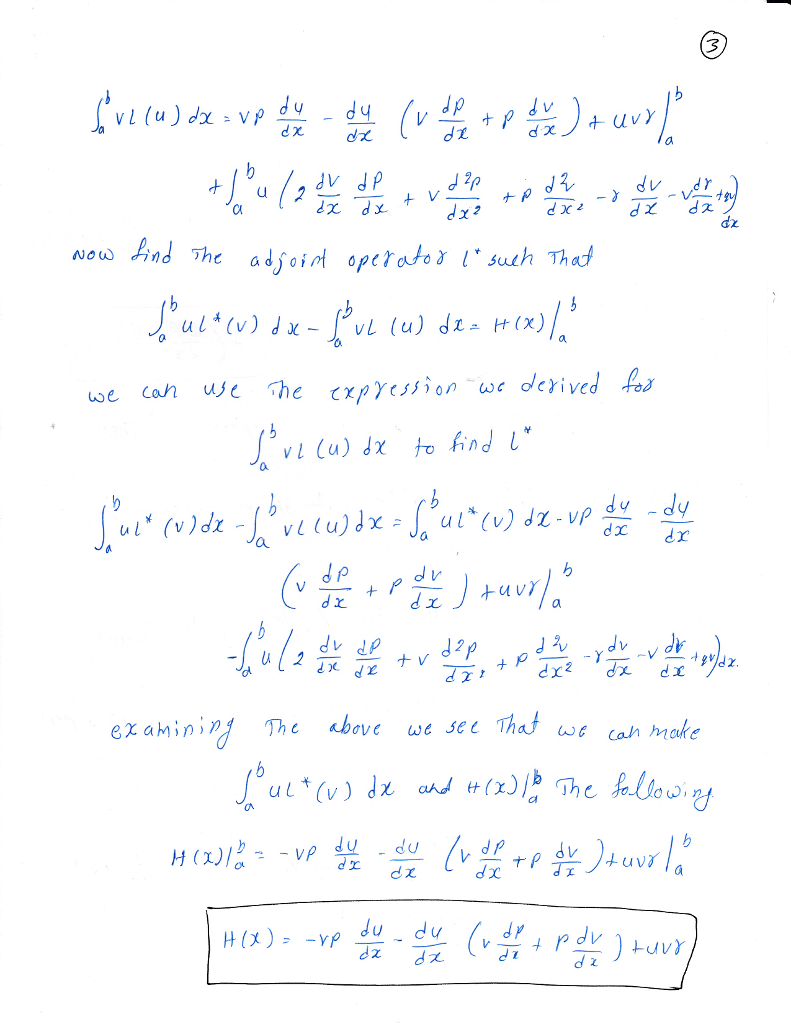 ③
∫ₐᵇ v L(u) dx = vp du/dx - du/dx (v dp/dx + p dv/dx) + uvr |ₐᵇ
+ ∫ₐᵇ u (2 dv/dx dp/dx + v d²p/dx² + p d²v/dx² - r dv/dx - v dr/dx + qv) dx
NOW find The adjoint operator L* such That
∫ₐᵇ u L*(v) dx - ∫ₐᵇ v L(u) dx = H(x) |ₐᵇ
we can use The expression we derived for
∫ₐᵇ v L(u) dx to find L*
∫ₐᵇ u L*(v) dx - ∫ₐᵇ v L(u) dx = ∫ₐᵇ u L*(v) dx - vp du/dx - du/dx
(v dp/dx + p dv/dx) + uvr |ₐᵇ
- ∫ₐᵇ u (2 dv/dx dp/dx + v d²p/dx² + p d²v/dx² - r dv/dx - v dr/dx + qv) dx.
examining The above we see That we can make
∫ₐᵇ u L*(v) dx and H(x) |ₐᵇ The following
H(x) |ₐᵇ = -vp du/dx - du/dx (v dp/dx + p dv/dx) + uvr |ₐᵇ
H(x) = -vp du/dx - du/dx (v dp/dx + p dv/dx) + uvr